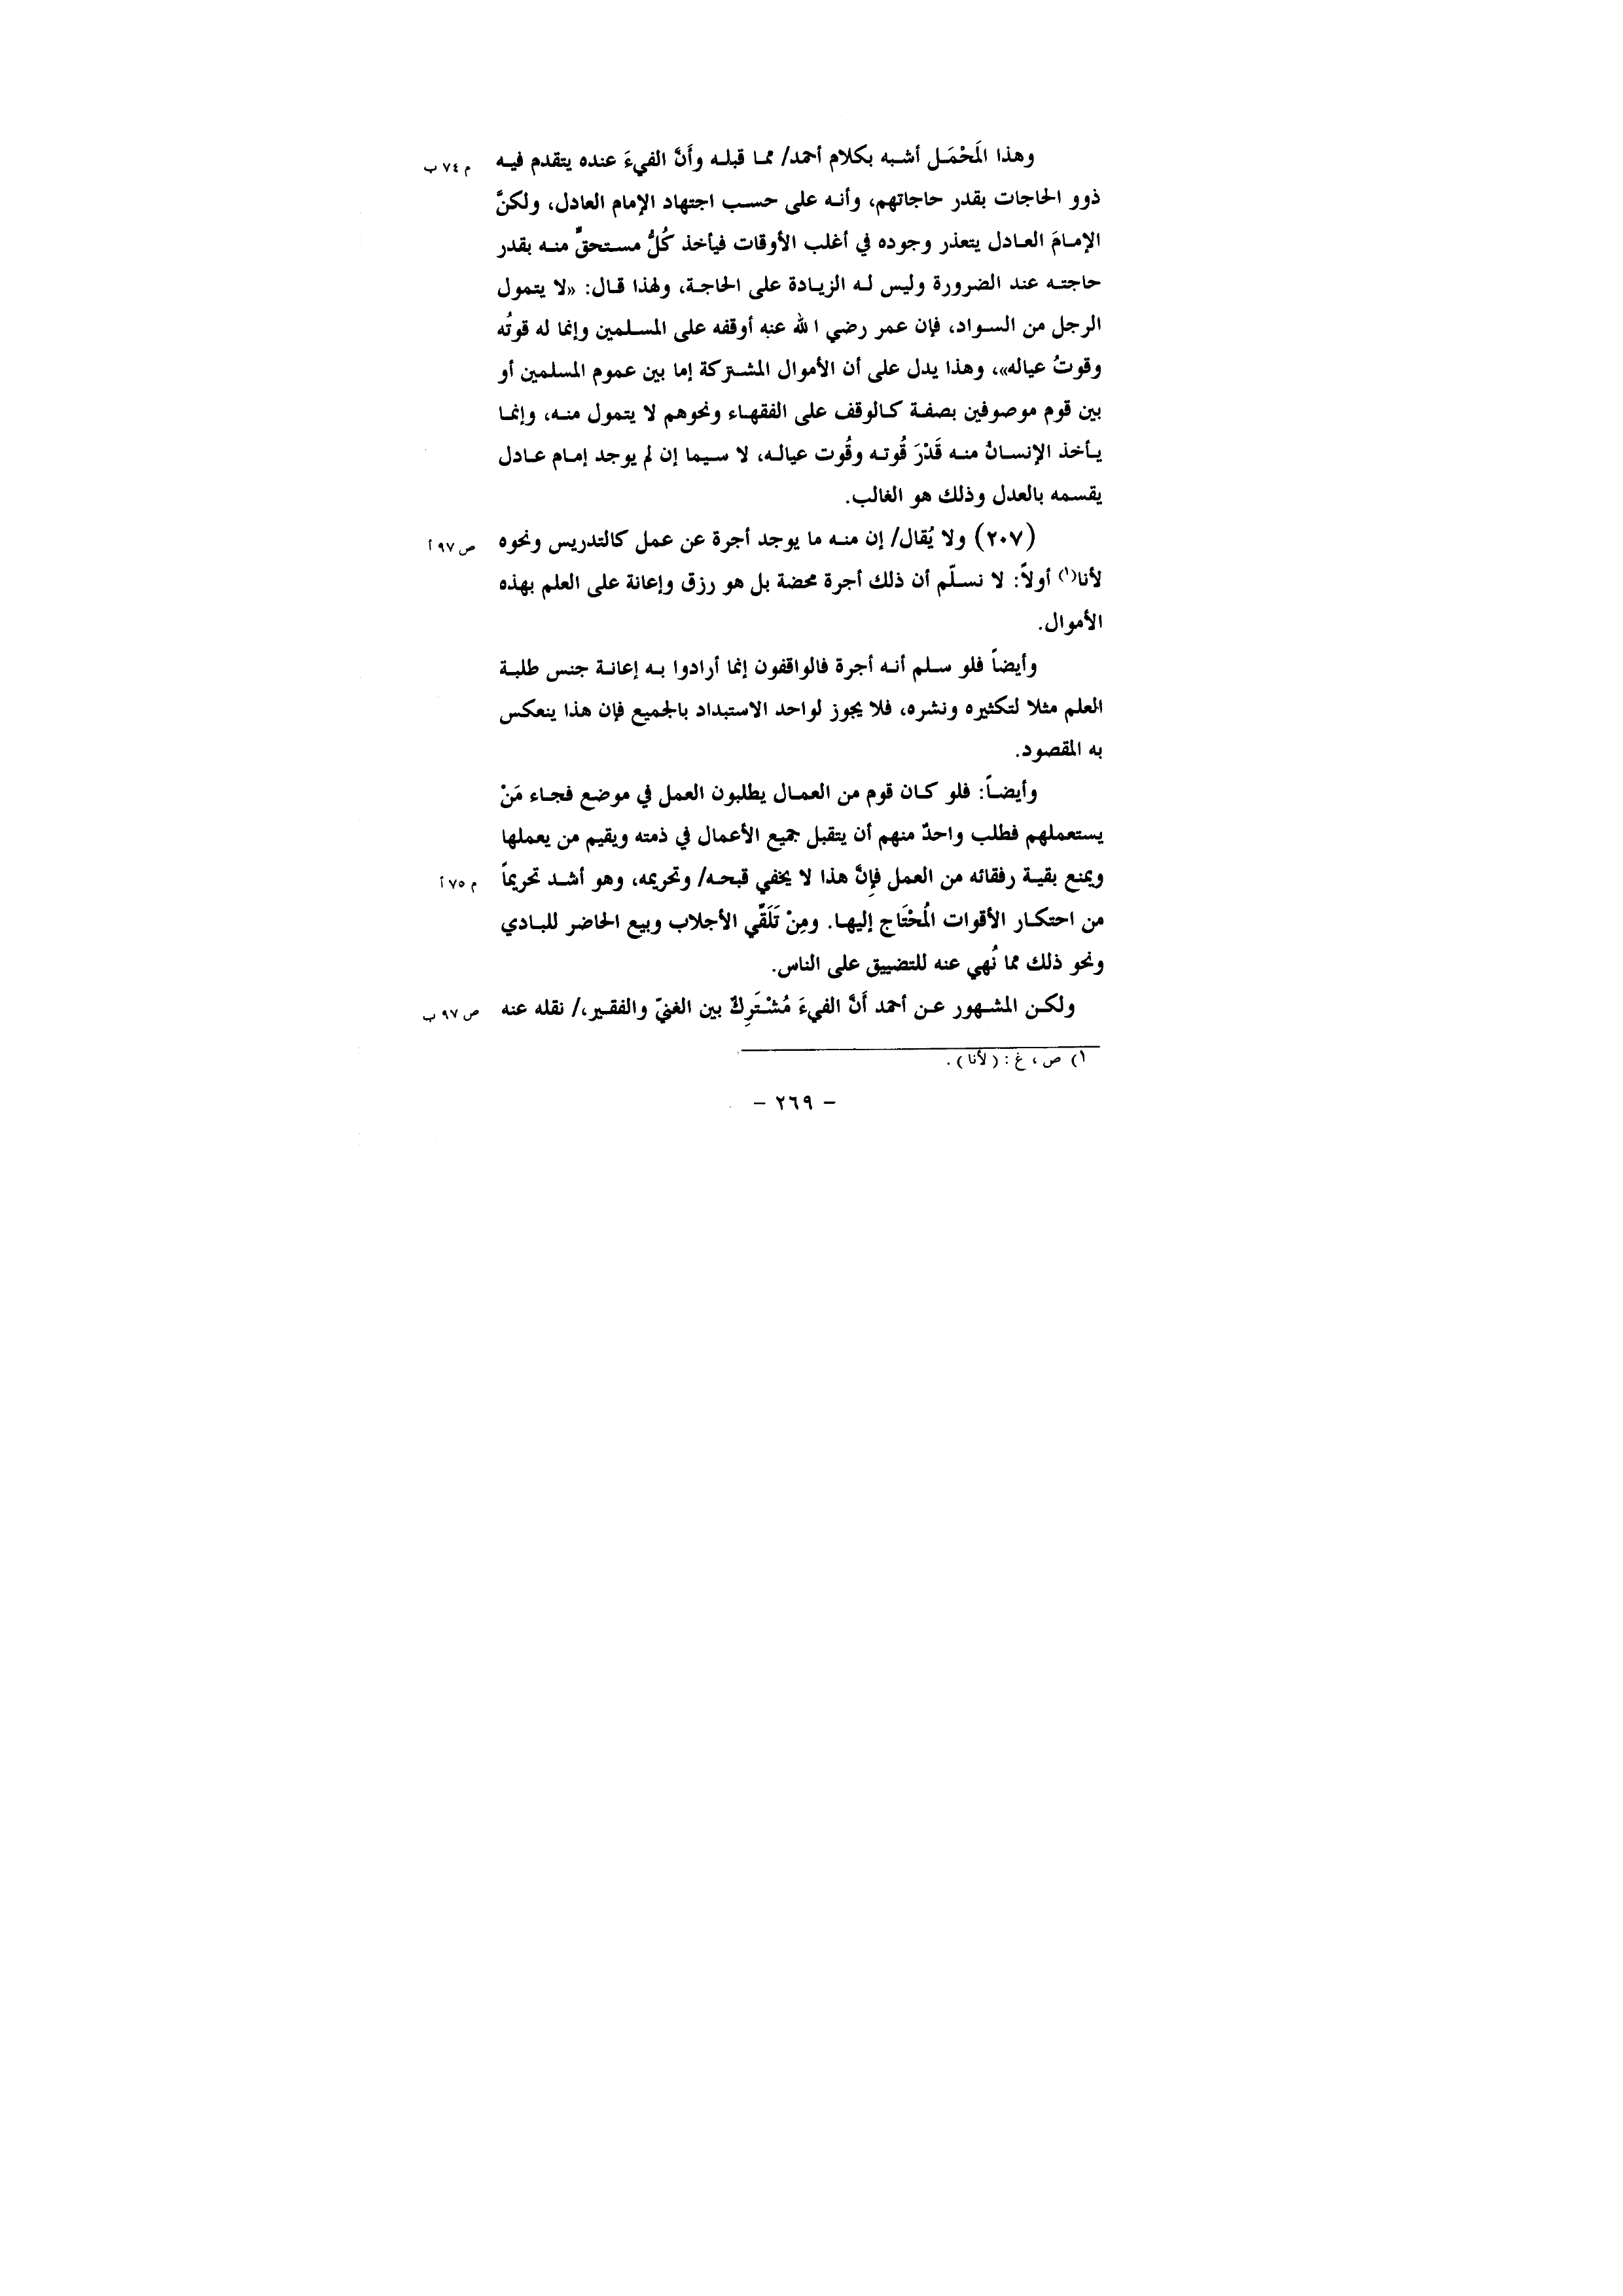 وهذا المَحْمَـل أشـبه بكلام أحمد/ ممـا قبلـه وأَنَّ الفيءَ عنده يتقدم فيـه م ٧٤ ب
ذوو الحاجات بقدر حاجاتهم، وأنـه على حسـب اجتهاد الإمام العادل، ولكنَّ
الإمـامَ العـادل يتعذر وجوده في أغلب الأوقات فيأخذ كُلُّ مسـتحقٍّ منـه بقدر
حاجتـه عند الضرورة وليس لـه الزيـادة على الحاجـة، ولهذا قـال: «لا يتمول
الرجل من السـواد، فإن عمر رضي الله عنه أوقفه على المسـلمين وإنما له قوتُه
وقوتُ عياله»، وهذا يدل على أن الأموال المشـتركة إما بين عموم المسلمين أو
بين قوم موصوفين بصفـة كـالوقف على الفقهـاء ونحوهم لا يتمول منـه، وإنمـا
يـأخذ الإنسـانُ منـه قَدْرَ قُوتـه وقُوت عيالـه، لا سـيما إن لم يوجد إمـام عـادل
يقسمه بالعدل وذلك هو الغالب.
(٢٠٧) ولا يُقال/ إن منـه ما يوجد أجرة عن عمل كالتدريس ونحوه ص ٩٧ أ
لأنا(١) أولاً: لا نسـلّم أن ذلك أجرة محضة بل هو رزق وإعانة على العلم بهذه
الأموال.
وأيضاً فلو سـلم أنـه أجرة فالواقفون إنما أرادوا بـه إعانـة جنس طلبـة
العلم مثلا لتكثيره ونشره، فلا يجوز لواحد الاستبداد بالجميع فإن هذا ينعكس
به المقصود.
وأيضـاً: فلو كـان قوم من العمـال يطلبون العمل في موضع فجـاء مَنْ
يستعملهم فطلب واحدٌ منهم أن يتقبل جميع الأعمال في ذمته ويقيم من يعملها
ويمنع بقيـة رفقائه من العمل فإِنَّ هذا لا يخفي قبحـه/ وتحريمه، وهو أشـد تحريماً م ٧٥ أ
من احتكـار الأقوات المُحْتَاج إليهـا. ومِنْ تَلَقِّي الأجلاب وبيع الحاضر للبـادي
ونحو ذلك مما نُهي عنه للتضييق على الناس.
ولكـن المشـهور عـن أحمد أَنَّ الفيءَ مُشْـتَرِكٌ بين الغنيّ والفقـير،/ نقله عنه ص ٩٧ ب
١) ص ، غ : ( لأنا ) .
– ٢٦٩ –